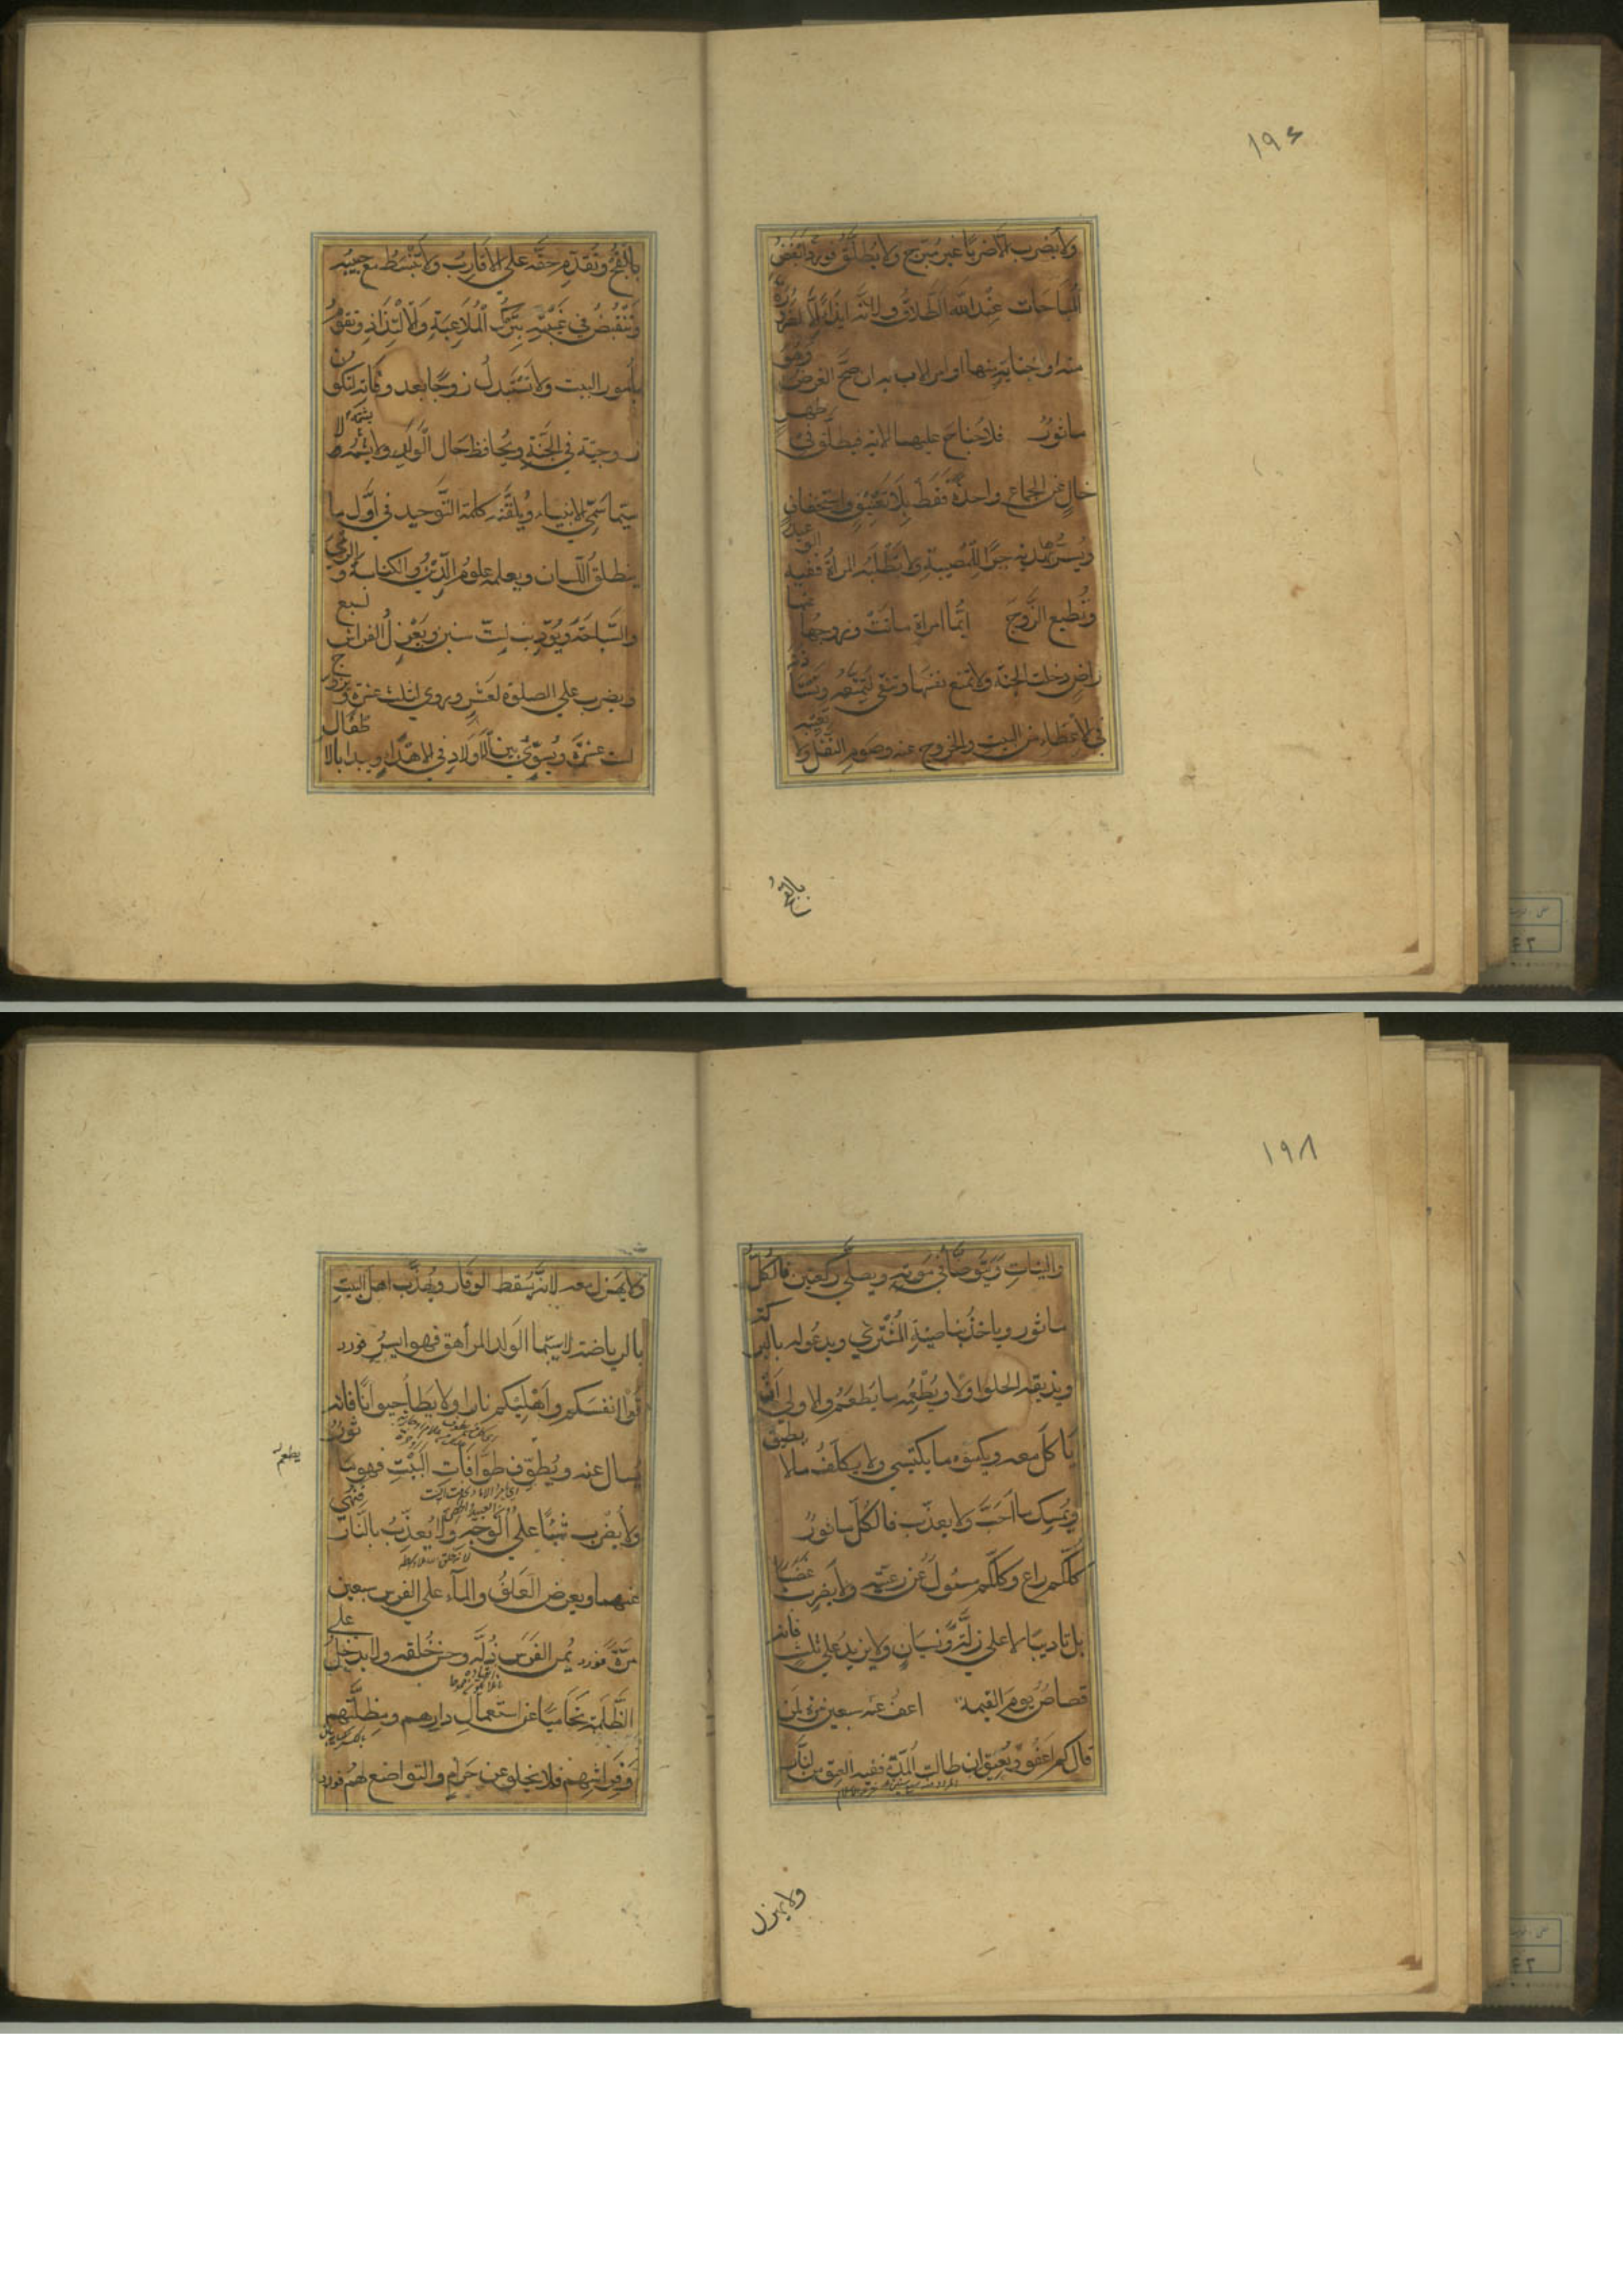 ١٩٤
ولا يضرب الا ضربا غير مبرح ولا يطلق فورد ابغض
المباحات عند الله الطلاق ولانه ايذاء الا لضرورة
منه او جناية منها او امر الاب به ان صح الغرض وهو
مأثور فلا جناح عليهما الاية فيطلق في طهر
خال عن الجماع واحدة فقط بلا تعنيف واستخفاف
ويسرها بهدية جبرا للمصيبة ولا تطلبه المرأة ففيه الوعيد
وتطيع الزوج ايما امرأة ماتت وزوجها عنها
راض دخلت الجنة ولا تمنع نفسها وتتقي لتمتعه وتستأذنه
في الاعطاء من البيت والخروج عنه وصوم النفل ولا تعيبه
بالقبح
بالقبح وتقدم حقه على الاقارب ولا تنبسط مع حبيبه
وتنقبض في غيبته بترك الملاعبة والالتذاذ وتقوم
بامور البيت ولا تستبدل زوجا بعد وفاته لتكون
زوجته في الجنة ويحافظ حال الولد ولا
سيما سمي الانبياء ويلقنه كلمة التوحيد في اول ما
ينطلق اللسان ويعلمه علوم الدين والكتابة والرمي
والسباحة ويؤدب لست سنين ويعزل الفراش لسبع
ويضرب على الصلوة لعشر وروي لثلث عشرة ويزوج
لست عشرة ويسوي بين الاولاد في الاهداء ويبدأ بالاطفال
١٩٨
والبنات ويتوضأ في موته ويصلي ركعتين فالكل
مأثور وياخذ بناصية المشتري ويدعو له بالبركة
ويذيقه الحلوا اولا ويطعمه ما يطعم والاولى ان
ياكل معه ويكسوه ما يكتسي ولا يكلف ما لا يطيق
ويمسك ما احب ولا يعذب فالكل مأثور
كلكم راع وكلكم مسئول عن رعيته ولا يضرب غضبا
بل تاديبا لا على زلة ونسيان ولا يزيد على ثلث فانه
قصاص يوم القيمة اعف عنه سبعين مرة لمن
قال كم اعفو ويعتق ان طالت المدة ففيه العتق من النار
ولا يهزل
ولا يهزل معه لانه يسقط الوقار ويهذب اهل البيت
بالرياضة لاسيما الولد المراهق فهو ايسر فورد
قوا انفسكم واهليكم نارا ولا يطأ حيوانا فانه
يسال عنه ويطوف طوافات البيت فهو مأثور
يطعم
ولا يضرب شيئا على الوجه ولا يعذب بالنار فنهي
عنهما ويعرض العلف والماء على الفرس سبعين
مرة فورد يمن الفرس ذله وحسن خلقه ولا يدخل على
الظلمة تحاميا عن استعمال دارهم ومظلتهم
وفراشهم فلا يخلو عن حرام والتواضع لهم فورد